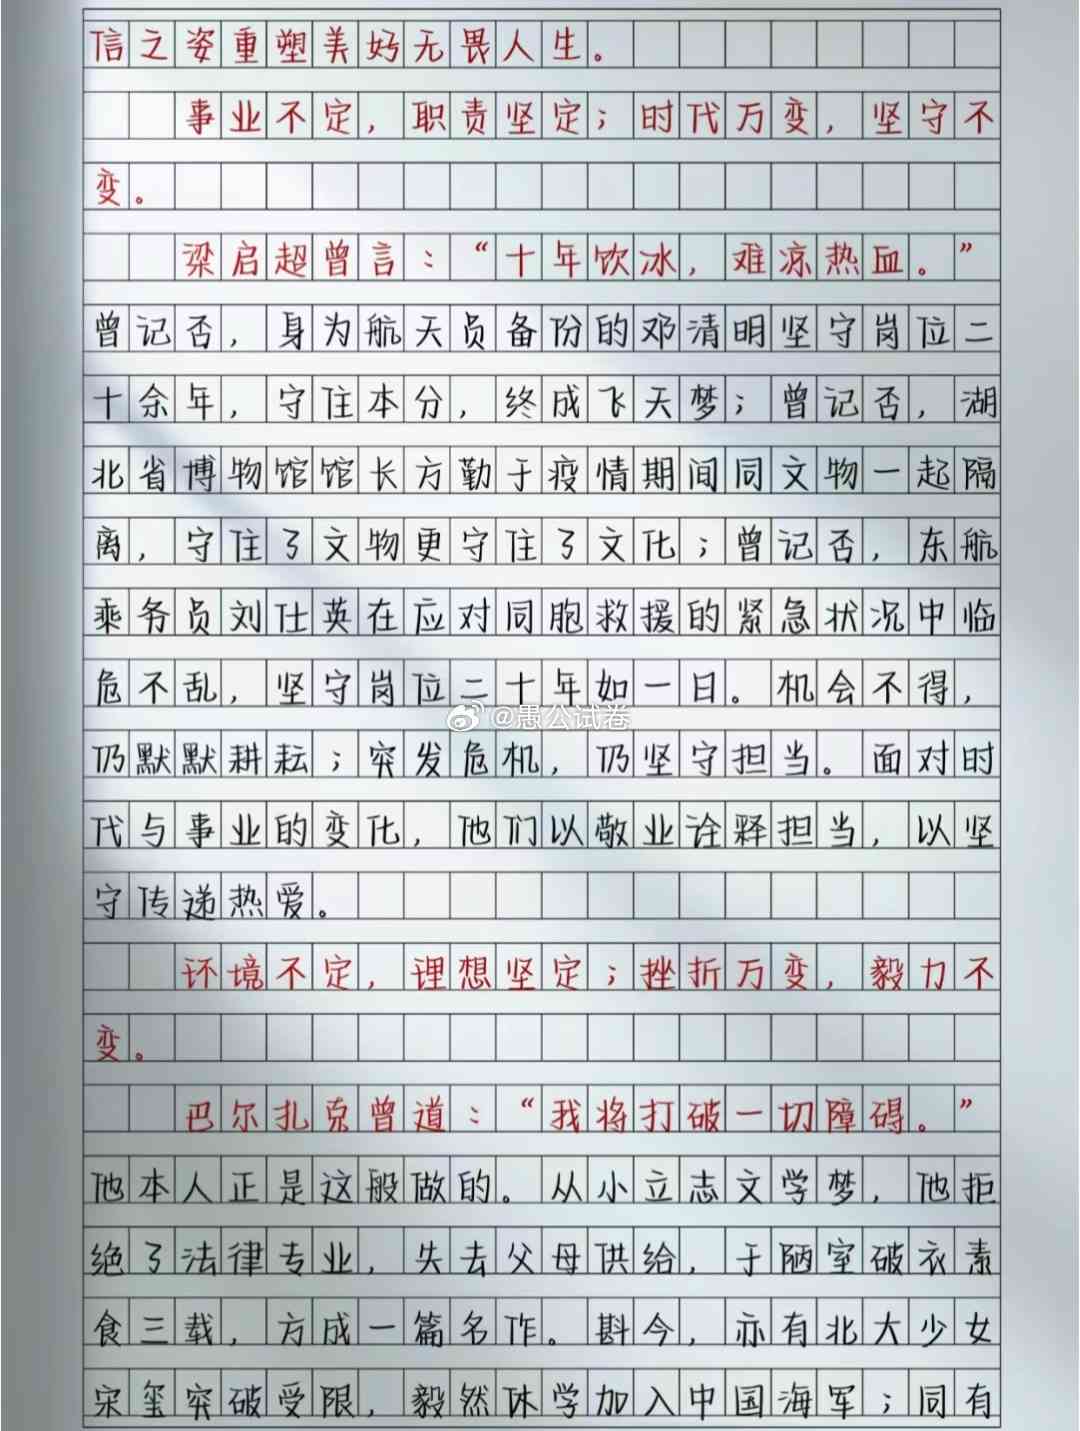 信之姿重塑美好无畏人生。
事业不定，职责坚定；时代万变，坚守不
变。
梁启超曾言：“十年饮冰，难凉热血。”
曾记否，身为航天员备份的邓清明坚守岗位二
十余年，守住本分，终成飞天梦；曾记否，湖
北省博物馆馆长方勤于疫情期间同文物一起隔
离，守住了文物更守住了文化；曾记否，东航
乘务员刘仕英在应对同胞救援的紧急状况中临
危不乱，坚守岗位二十年如一日。机会不得，
@愚公试卷
仍默默耕耘；突发危机，仍坚守担当。面对时
代与事业的变化，他们以敬业诠释担当，以坚
守传递热爱。
环境不定，理想坚定；挫折万变，毅力不
变。
巴尔扎克曾道：“我将打破一切障碍。”
他本人正是这般做的。从小立志文学梦，他拒
绝了法律专业，失去父母供给，于陋室破衣素
食三载，方成一篇名作。斟今，亦有北大少女
宋玺突破受限，毅然休学加入中国海军；同有